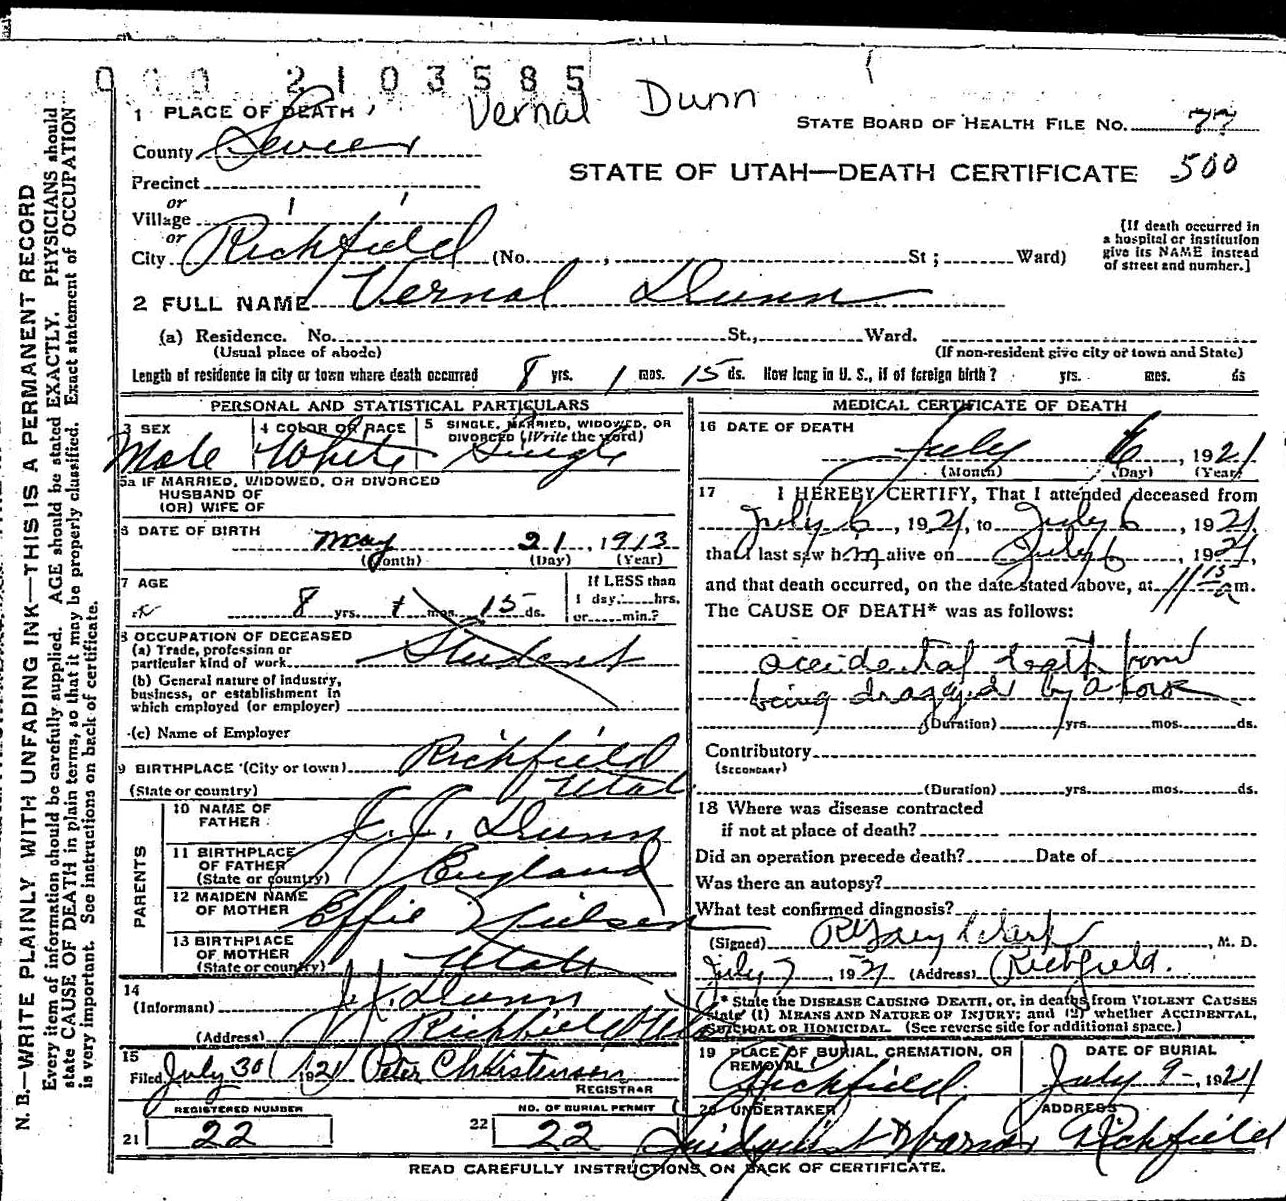 000 2103585
Vernal Dunn
1 PLACE OF DEATH
STATE BOARD OF HEALTH FILE NO. 77
County Sevier
STATE OF UTAH—DEATH CERTIFICATE 500
Precinct
or
Village
or
City Richfield (No. , St ; Ward)
[If death occurred in
a hospital or institution
give its NAME instead
of street and number.]
2 FULL NAME Vernal Dunn
(a) Residence. No. St., Ward.
(Usual place of abode) (If non-resident give city or town and State)
Length of residence in city or town where death occurred 8 yrs. 1 mos. 15 ds. How long in U. S., if of foreign birth? yrs. mos. ds
PERSONAL AND STATISTICAL PARTICULARS
3 SEX
Male
4 COLOR OR RACE
White
5 SINGLE, MARRIED, WIDOWED, OR
DIVORCED (Write the word)
Single
5a IF MARRIED, WIDOWED, OR DIVORCED
HUSBAND OF
(OR) WIFE OF
6 DATE OF BIRTH
May 21, 1913
(Month) (Day) (Year)
7 AGE
8 yrs. 1 mos. 15 ds.
If LESS than
1 day, hrs.
or min.?
8 OCCUPATION OF DECEASED
(a) Trade, profession or
particular kind of work Student
(b) General nature of industry,
business, or establishment in
which employed (or employer)
(c) Name of Employer
9 BIRTHPLACE (City or town) Richfield
(State or country) Utah
PARENTS
10 NAME OF
FATHER J. J. Dunn
11 BIRTHPLACE
OF FATHER
(State or country) England
12 MAIDEN NAME
OF MOTHER Effie Nielsen
13 BIRTHPLACE
OF MOTHER
(State or country) Utah
14
(Informant) J. J. Dunn
(Address) Richfield Utah
15
Filed July 30, 1921 Peter Christensen
REGISTRAR
REGISTERED NUMBER
21 22
NO. OF BURIAL PERMIT
22 22
MEDICAL CERTIFICATE OF DEATH
16 DATE OF DEATH
July 6, 1921
(Month) (Day) (Year)
17 I HEREBY CERTIFY, That I attended deceased from
July 6, 1921, to July 6, 1921,
that I last saw him alive on July 6, 1921,
and that death occurred, on the date stated above, at 11 15 a m.
The CAUSE OF DEATH* was as follows:
accidental death from
being dragged by a
(Duration) yrs. mos. ds.
Contributory
(SECONDARY)
(Duration) yrs. mos. ds.
18 Where was disease contracted
if not at place of death?
Did an operation precede death? Date of
Was there an autopsy?
What test confirmed diagnosis?
(Signed) , M. D.
July 7, 1921 (Address) Richfield.
* State the DISEASE CAUSING DEATH, or, in deaths from VIOLENT CAUSES
state (1) MEANS AND NATURE OF INJURY; and (2) whether ACCIDENTAL,
SUICIDAL OR HOMICIDAL. (See reverse side for additional space.)
19 PLACE OF BURIAL, CREMATION, OR
REMOVAL
Richfield.
DATE OF BURIAL
July 9-, 1921
20 UNDERTAKER
ADDRESS
Richfield
READ CAREFULLY INSTRUCTIONS ON BACK OF CERTIFICATE.
N. B.—WRITE PLAINLY WITH UNFADING INK—THIS IS A PERMANENT RECORD
Every item of information should be carefully supplied. AGE should be stated EXACTLY. PHYSICIANS should
state CAUSE OF DEATH in plain terms, so that it may be properly classified. Exact statement of OCCUPATION
is very important. See instructions on back of certificate.